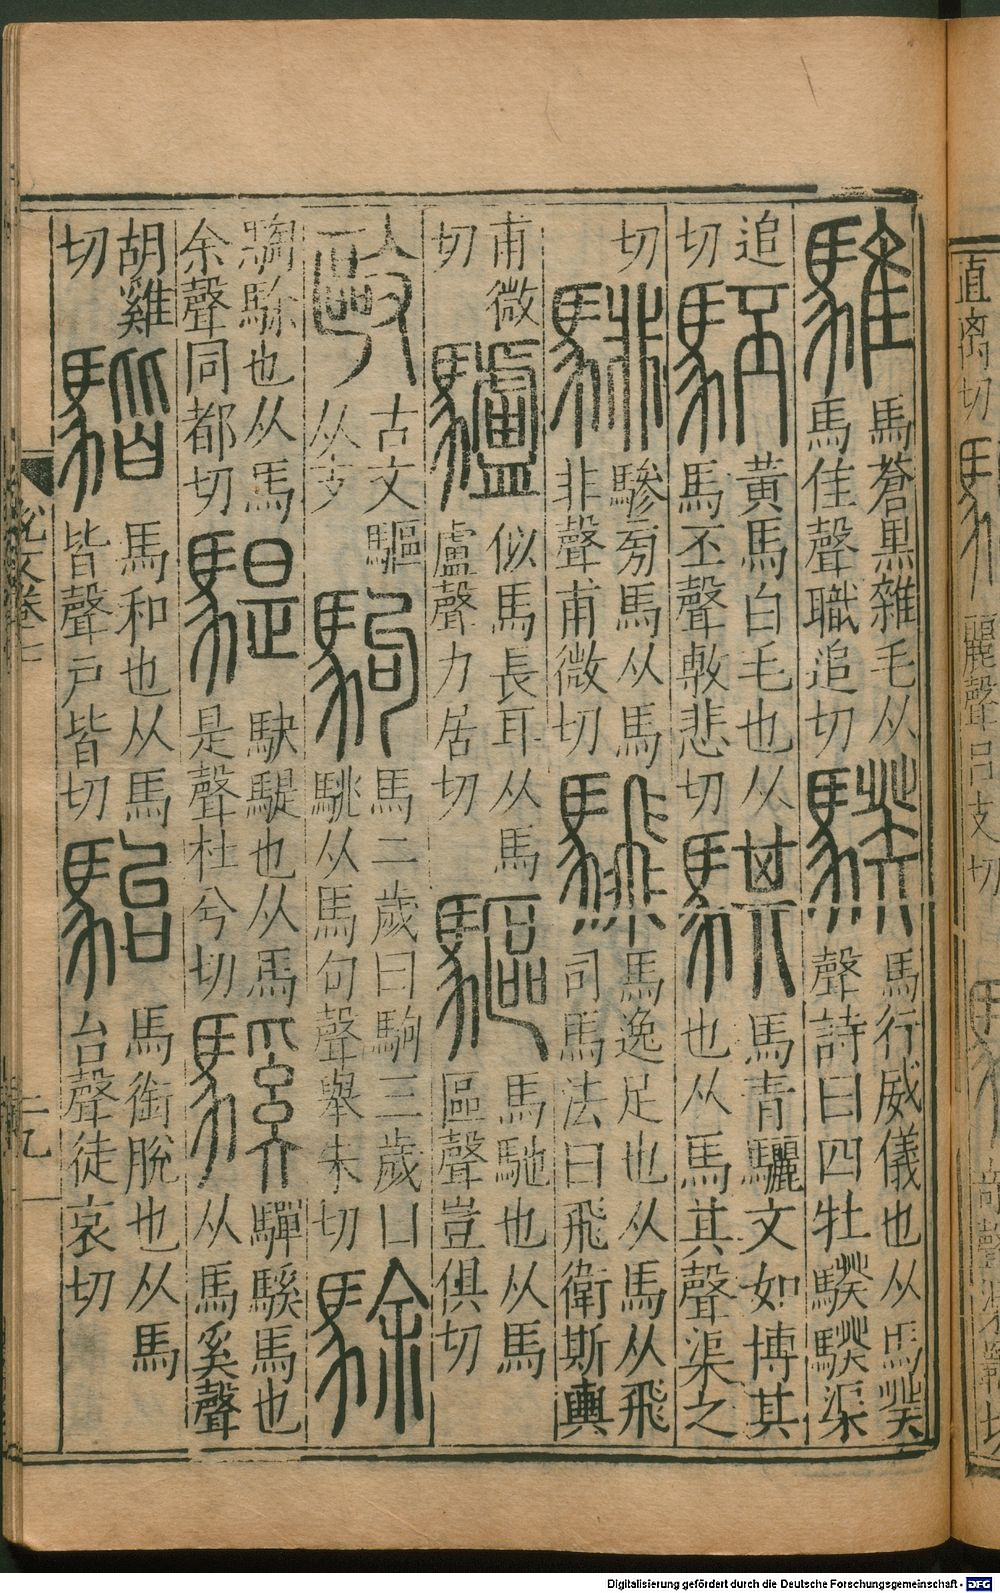 直离切
麗聲呂支切
騅馬蒼黒雜毛从馬隹聲職追切騤馬行威儀也从馬癸聲詩曰四牡騤騤渠
追切駓黄馬白毛也从馬丕聲敷悲切騏馬青驪文如博其也从馬其聲渠之
切騑驂㫄馬从馬非聲甫微切騛馬逸足也从馬从飛司馬法曰飛衛斯輿
甫微切驢似馬長耳从馬盧聲力居切驅馬馳也从馬區聲豈俱切
敺古文驅从攴駒馬二歲曰駒三歲曰駣从馬句聲舉朱切駼
騊駼也从馬余聲同都切騠駃騠也从馬是聲杜兮切騱驒騱馬也从馬奚聲
胡雞切𩤠馬和也从馬皆聲戸皆切駘馬銜脫也从馬台聲徒哀切
說文卷七
二九
Digitalisierung gefördert durch die Deutsche Forschungsgemeinschaft - DFG